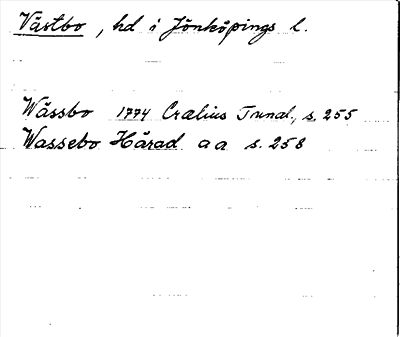 Västbo, hd i Jönköpings l.
Wässbo 1774 Crælius Tunal., s. 255
Wassebo Härad a a s. 258